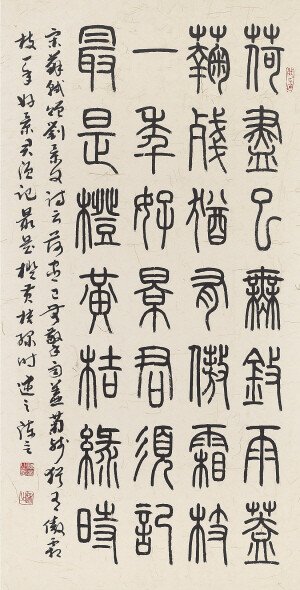 荷盡已無擎雨蓋
菊殘猶有傲霜枝
一年好景君須記
最是橙黃桔綠時
宋蘇軾贈劉景文詩云荷盡已無擎雨蓋菊殘猶有傲霜
枝一年好景君須記最是橙黃桔綠時